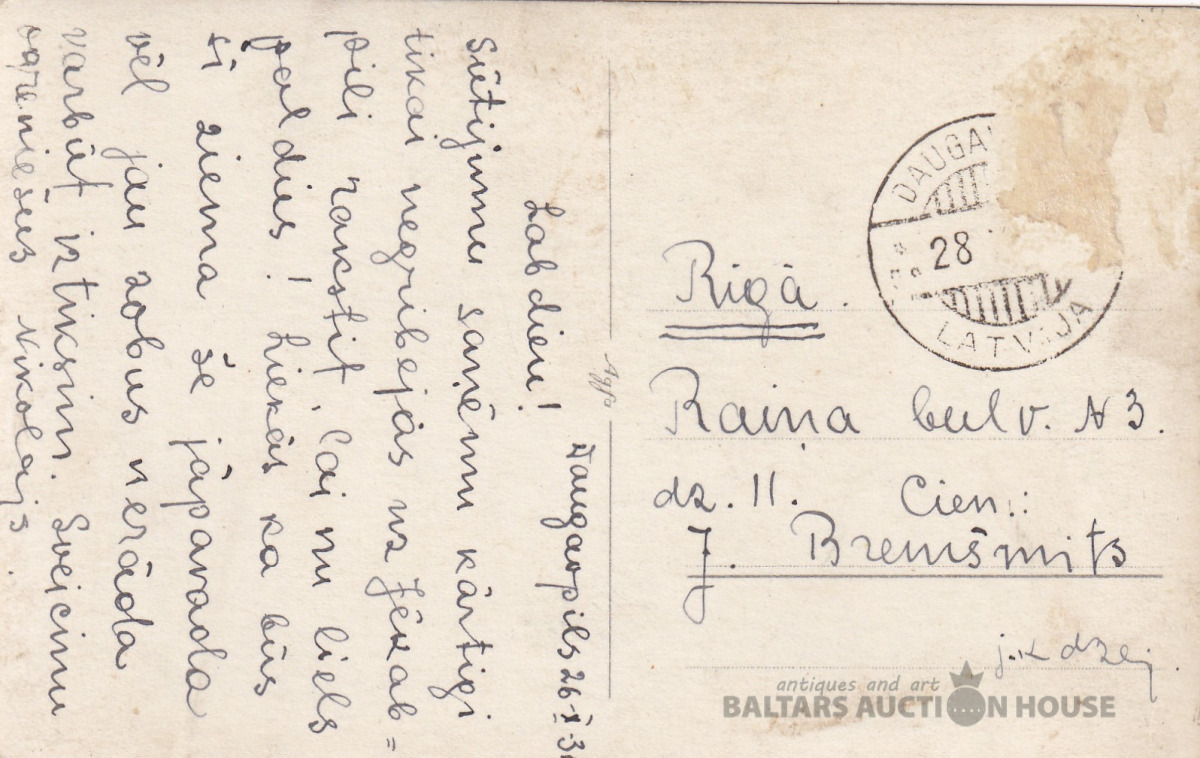 Daugavpils 26-X-3
Lab dien!
Sūtijumu saņēmu kārtigi
tikai negribejās uz Jēkab=
pili rakstit, lai nu liels
paldius! Liekās ka būs
šī ziema še jāpavada
vēl jau zobus nerāda
varbūt iztiksim. Sveicinu
Nikolajs.
DAUGAV
28
LATVIJA
Rīgā.
Raiņa bulv. № 3.
dz. 11. Cien.:
J. Bremšmits
antiques and art
BALTARS AUCTION HOUSE